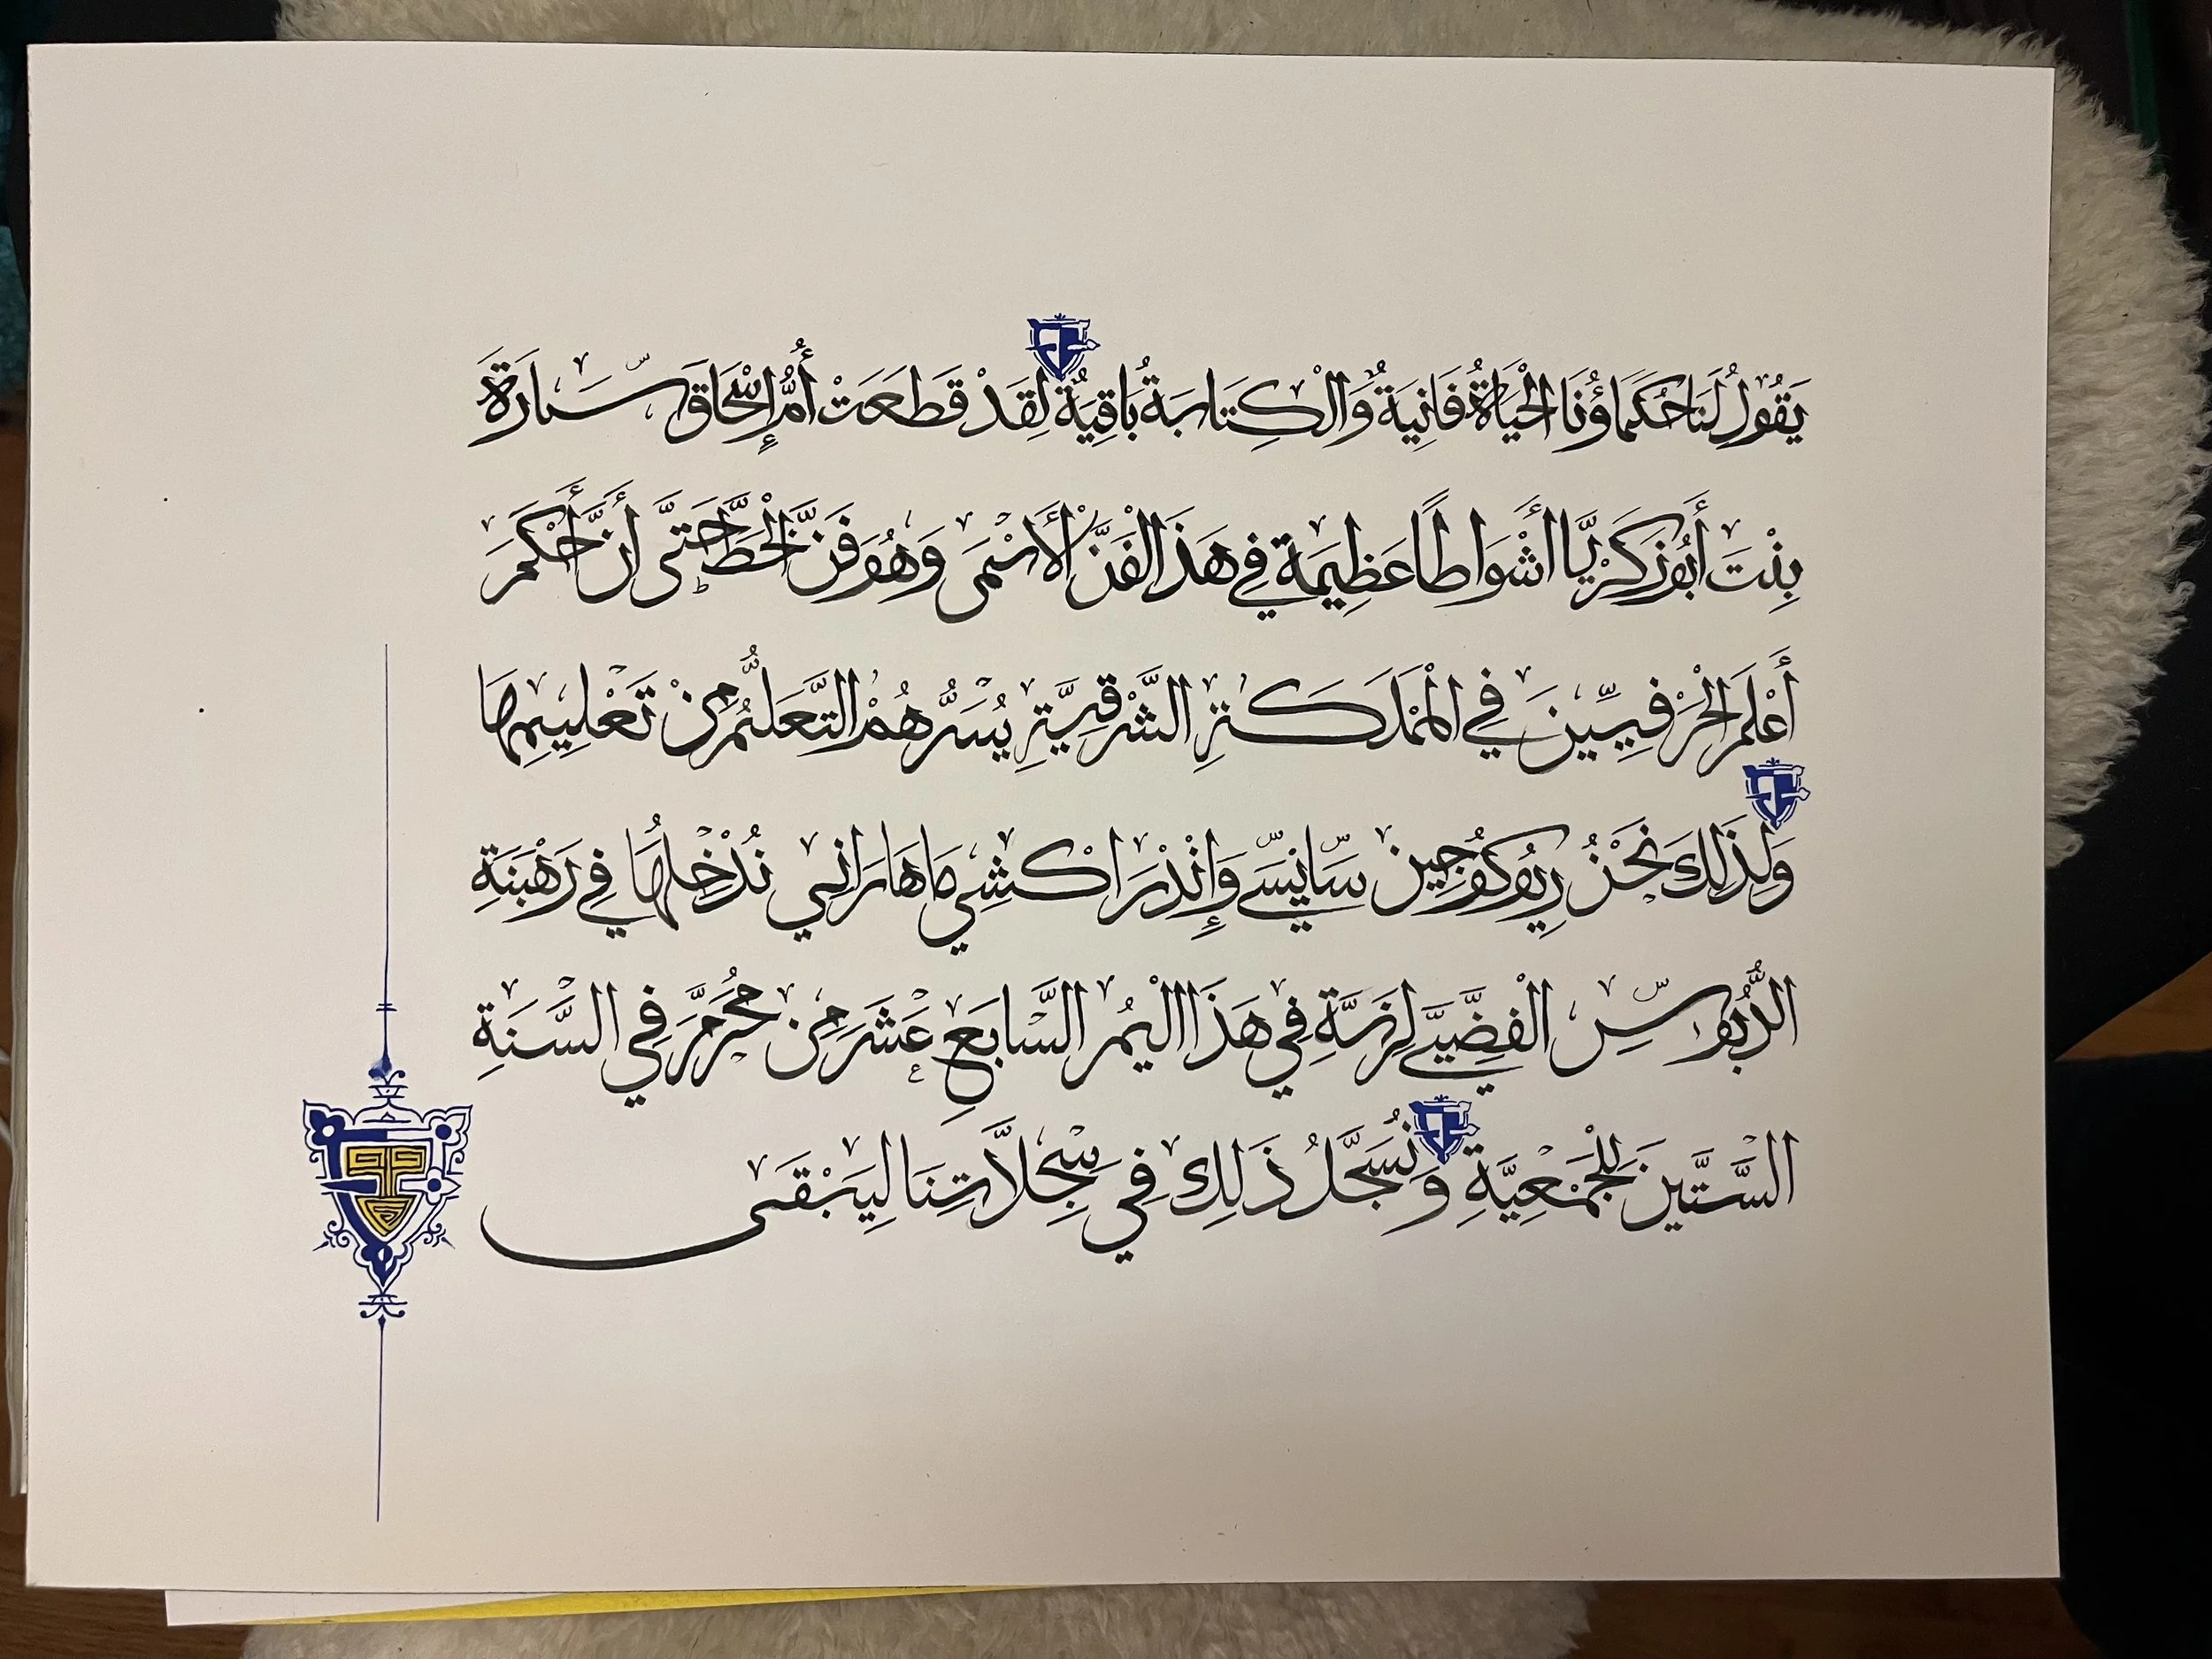 يَقُولُ لَنَا حُكَمَاؤُنَا الْحَيَاةُ فَانِيَةٌ وَالْكِتَابَةُ بَاقِيَةٌ لِقَدْ قَطَعَتْ أُمُّ إِسْحَاقَ سَارَة
بِنْتَ أَبُو زَكَرْيَّا أَشْوَاطًا عَظِيمَة فِي هَذَا الْفَنَّ الْأَسْمَى وَهُوَ فَنَّ الْخَطَّ حَتَّى أَنَّ أَحْكَمَ
أَعْلَمَ الْحَرْفِيِّينَ فِي الْمَمْلَكَةِ الشَّرْقِيَّةِ يُسَرُّهُمْ التَّعَلُّمُ مِنْ تَعْلِيمِهَا
وَلِذَلِكَ نَحْنُ رِيُوكُوجِين سَانِسِي وَإِنْدْرَاكشِي مَاهَارَانِي نُدْخِلُهَا فِي رَهْبَنَةِ
الدُّبُوسِ الْفِضِّي لِزَيَّةِ فِي هَذَا الْيُمر السَّابَعِ عَشَرَ مِنْ مُحَرَّمَ فِي السَّنَةِ
السَّتَّينَ لِلْجَمْعِيَّةِ وَنُسَجَّلُ ذَلِكَ فِي سِجِلَّاتِنَا لِيَبْقَى